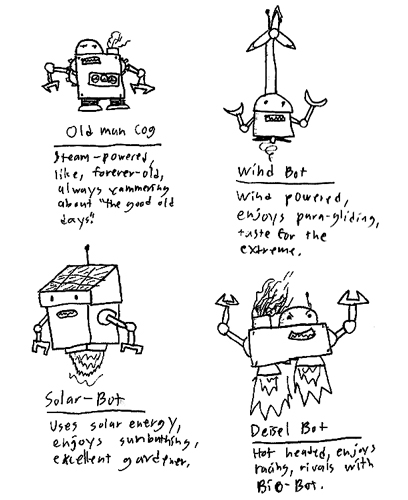 Old man Cog
Steam-powered,
like, forever-old,
always yammering
about "the good old
days."
Wind Bot
Wind powered,
enjoys para-gliding,
taste for the
extreme.
Solar-Bot
Uses solar energy,
enjoys sunbathing,
excellent gardener.
Deisel Bot
Hot headed, enjoys
racing, rivals with
Bio-Bot.